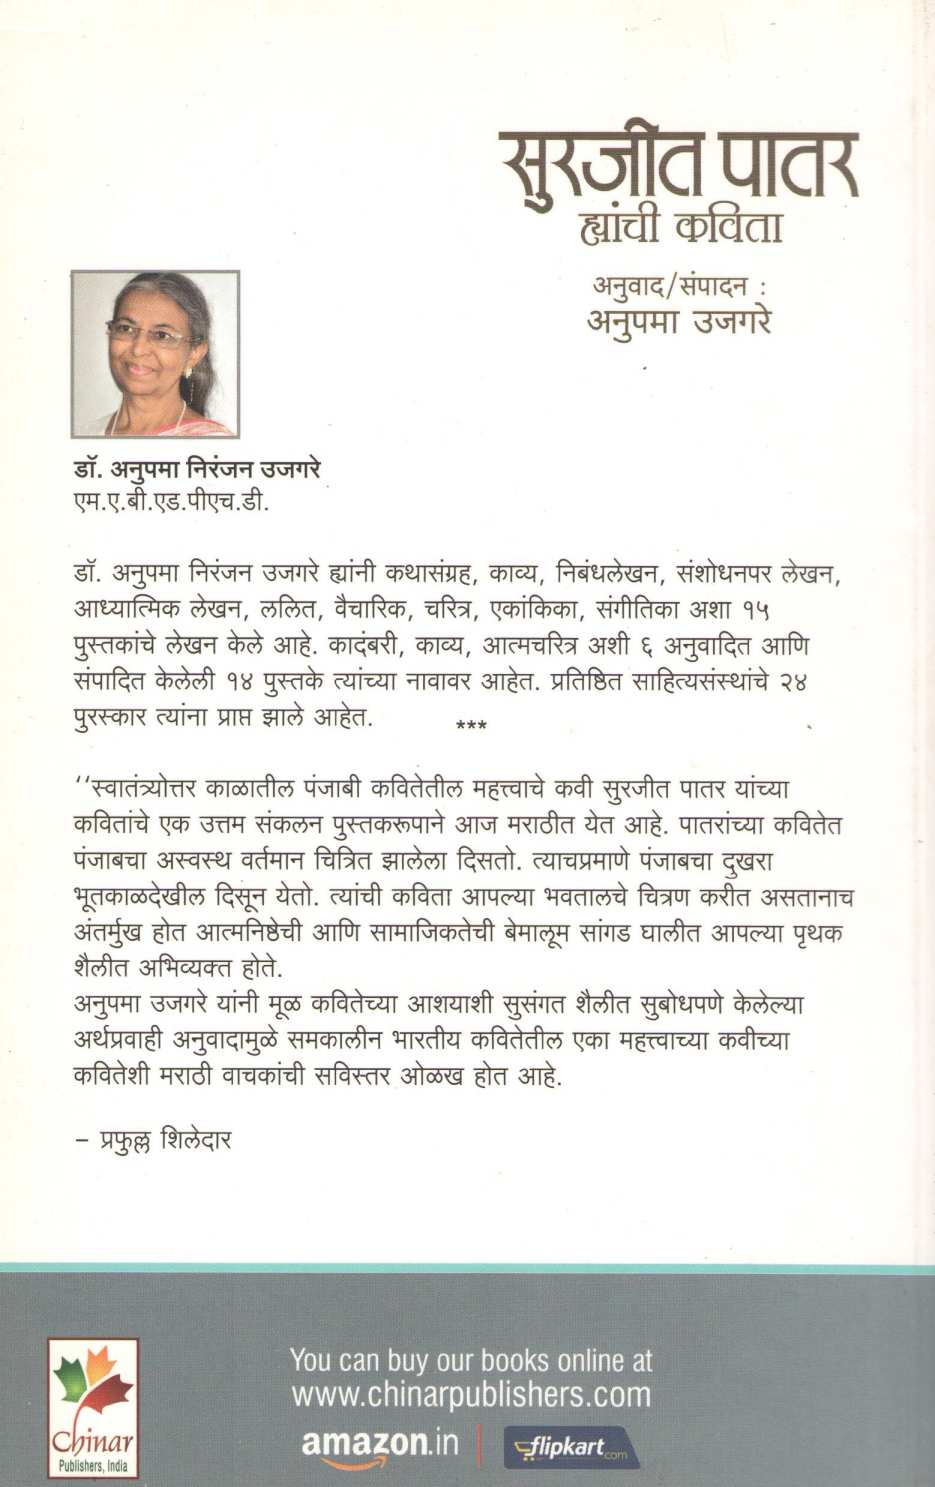 सुरजीत पातर
ह्यांची कविता
अनुवाद/संपादन :
अनुपमा उजगरे
डॉ. अनुपमा निरंजन उजगरे
एम.ए.बी.एड.पीएच.डी.
डॉ. अनुपमा निरंजन उजगरे ह्यांनी कथासंग्रह, काव्य, निबंधलेखन, संशोधनपर लेखन,
आध्यात्मिक लेखन, ललित, वैचारिक, चरित्र, एकांकिका, संगीतिका अशा १५
पुस्तकांचे लेखन केले आहे. कादंबरी, काव्य, आत्मचरित्र अशी ६ अनुवादित आणि
संपादित केलेली १४ पुस्तके त्यांच्या नावावर आहेत. प्रतिष्ठित साहित्यसंस्थांचे २४
पुरस्कार त्यांना प्राप्त झाले आहेत.
***
‘‘स्वातंत्र्योत्तर काळातील पंजाबी कवितेतील महत्त्वाचे कवी सुरजीत पातर यांच्या
कवितांचे एक उत्तम संकलन पुस्तकरूपाने आज मराठीत येत आहे. पातरांच्या कवितेत
पंजाबचा अस्वस्थ वर्तमान चित्रित झालेला दिसतो. त्याचप्रमाणे पंजाबचा दुखरा
भूतकाळदेखील दिसून येतो. त्यांची कविता आपल्या भवतालचे चित्रण करीत असतानाच
अंतर्मुख होत आत्मनिष्ठेची आणि सामाजिकतेची बेमालूम सांगड घालीत आपल्या पृथक
शैलीत अभिव्यक्त होते.
अनुपमा उजगरे यांनी मूळ कवितेच्या आशयाशी सुसंगत शैलीत सुबोधपणे केलेल्या
अर्थप्रवाही अनुवादामुळे समकालीन भारतीय कवितेतील एका महत्त्वाच्या कवीच्या
कवितेशी मराठी वाचकांची सविस्तर ओळख होत आहे.
– प्रफुल्ल शिलेदार
Chinar
Publishers, India
You can buy our books online at
www.chinarpublishers.com
amazon.in
flipkart.com